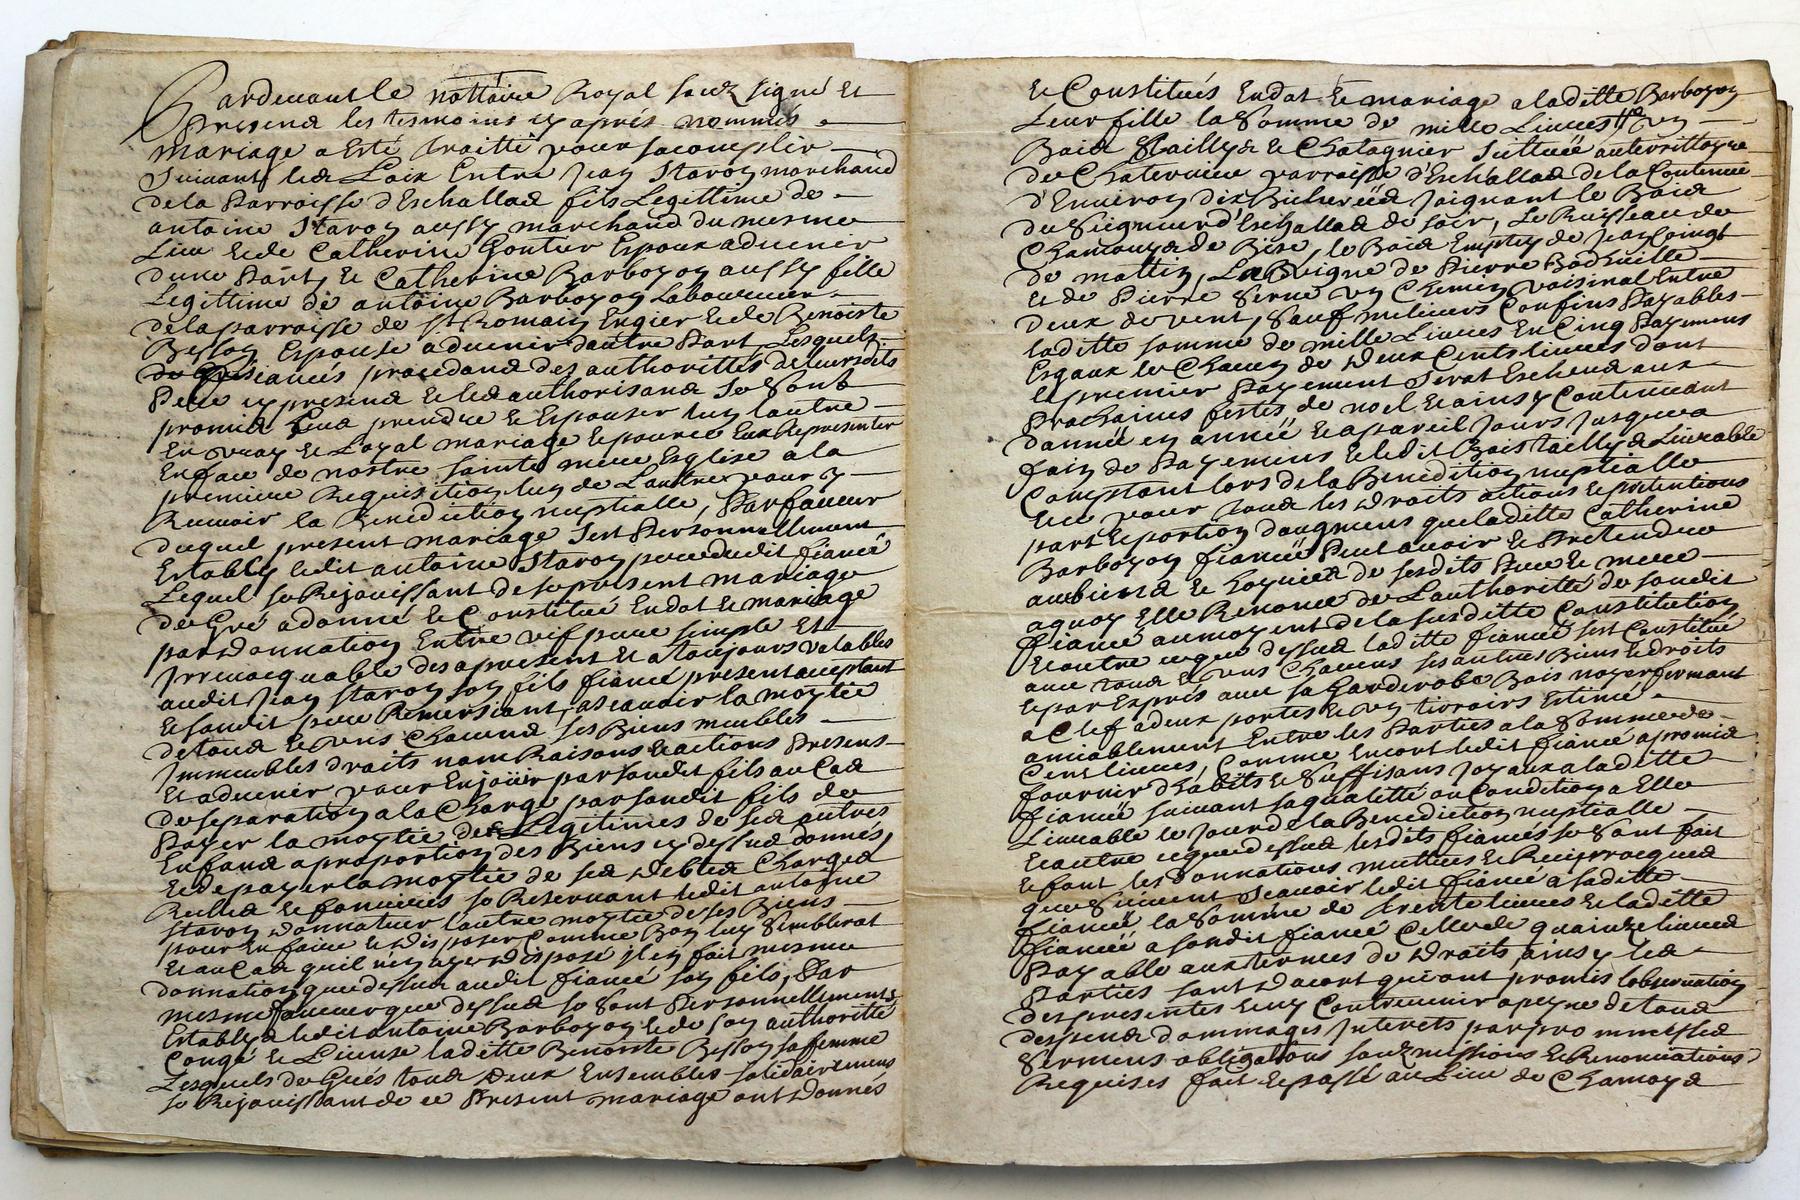 Pardevant le nottaire Royal souz signé Et
Presend les tesmoins cy apres nommés
mariage a Esté traitté pour sacomplir
Suivant les Loix Entre Jean Staron marchand
de la Parroisse d'Eschallas fils Legittime de
antoine Staron aussy marchand du mesme
Lieu Et de Catherine Gontier Espoux advenir
dune Part, Et Catherine Barboyon aussy fille
Legittime de antoine Barboyon Laboureur
de la parroisse de St Romain Engier Et de Benoiste
Besson Espouse advenir dautre Part, Lesquels
fiancés procedans des authorittés de leursdits
Pere cy presend Et les authorisans Se Sont
promis prendre Et Espouser luy lautre
En vray Et Loyal mariage Et pource Eux Representer
En face de nostre Sainte mere Esglise a la
premiere Requisition luy de Lautre pour y
Recevoir la Benediction nuptialle, Parfaveur
duquel present mariage Sest Personnellement
Estably ledit antoine Staron pere dudit fiancé
Lequel se Rejouissant de se present mariage
de Gré a donné Et Constitué En dot Et mariage
par Donnation Entre vif pure simple Et
Irrevocquable des apresent Et a tousjours valables
audit Jean Staron son fils fiancé present acceptant
Et sondit pere Remersiant, ascavoir la moytié
de tous Et uns Chacuns ses Biens meubles
Immeubles droits nom Raisons Et actions Presens
Et advenir pour En joüir par sondit fils au Cas
de separation a la Charge par sondit fils de
Payer la moytié des Legitimes de ses autres
Enfans a proportion des Biens cy dessus donnés,
Et de payer la moytié de ses Debtes Charges
Reelles Et foncieres se Reservant ledit antoine
Staron Donnateur lautre moytié de ses Biens
pour En faire Et Disposer Comme Bon luy Semblerat
Et au Cas quil nen aye Disposé il En fait mesme
donnation que dessus audit fiancé son fils, Par
mesme faveur que dessus se sont Personnellements
Establys ledit antoine Barboyon Et de son authoritté
Congé Et License ladite Benoiste Besson sa femme
Lesquels de Grés tous Deux Ensembles solidairemens
se Rejouissant de ce Present mariage ont Donnés
Et Constitués En dot Et mariage a laditte Barboyon
Leur fille la Somme de mille Livres Un
Bois Tailly Et Chatagnier Scittué au territtoyre
de parroisse d'Eschallas de la Contenue
d'Environ dix Bicherées Joignant le Bois
du Seigneur d'Eschallas de soir, Le Ruisseau de
Chamouys de Bise, le Bois de Jean
de mattin, La Vigne de Pierre
Et de Pierre un Chemin voisinal Entre
deux de vent, Sauf meilleurs Confins Payables
laditte somme de mille Livres En Cinq Payemens
Esgaux Et Chacun de Deux Cents livres dont
le premier Payement Serat Escheus aux
Prochaines festes de noel Et ainsy Contenuant
dannée en année Et a pareil Jours Jusques a
fain de Payemens Et ledit Bois tailly Livrable
Comptant lors de la Benedition nuptialle
Et ce pour tous les Droits actions Et pretentions
part Et portion daugmens que laditte Catherine
Barboyon fiancée Peut avoir Et Pretendre
aux biens Et hoyries de sesdits Pere Et mere
a quoy Elle Renonce de Lauthoritté de sondit
fiancé au moyent de la susditte Constitution
Et outre ce que dessus laditte fiancée sest Constitué
avec tous Et uns Chacuns ses autres Biens Et droits
Et par Exprés avec sa Garderobe Bois noyer fermant
a Clef a deux portes Et un tiroirs Estimé
amiablement Entre les Parties a la Somme de
Cens livres, Comme Encort ledit fiancé a promis
fournir d'habits Et Suffisans Joyaux a laditte
fiancée suivant sa qualitté ou Condition a Elle
Livrable le Jour de la Benedition nuptialle
Et outre ce que dessus lesdits fiancés se Sont fait
Et font les donnations mutties Et Reciprocques
que Suivent Scavoir ledit fiancé a saditte
fiancée la Somme de trente livres Et laditte
fiancée a sondit fiancé Celle de quinze livres
Payable aux termes de Droits ainsy Les
Parties sont Dacort qui ont promis lobservation
des presentes Et ny Contrevenir a peyne de tous
despens dommages Interets par pro
Sermens obligations souzmissions Et Renonciations
Requises fait Et passé au Lieu de Chamoys